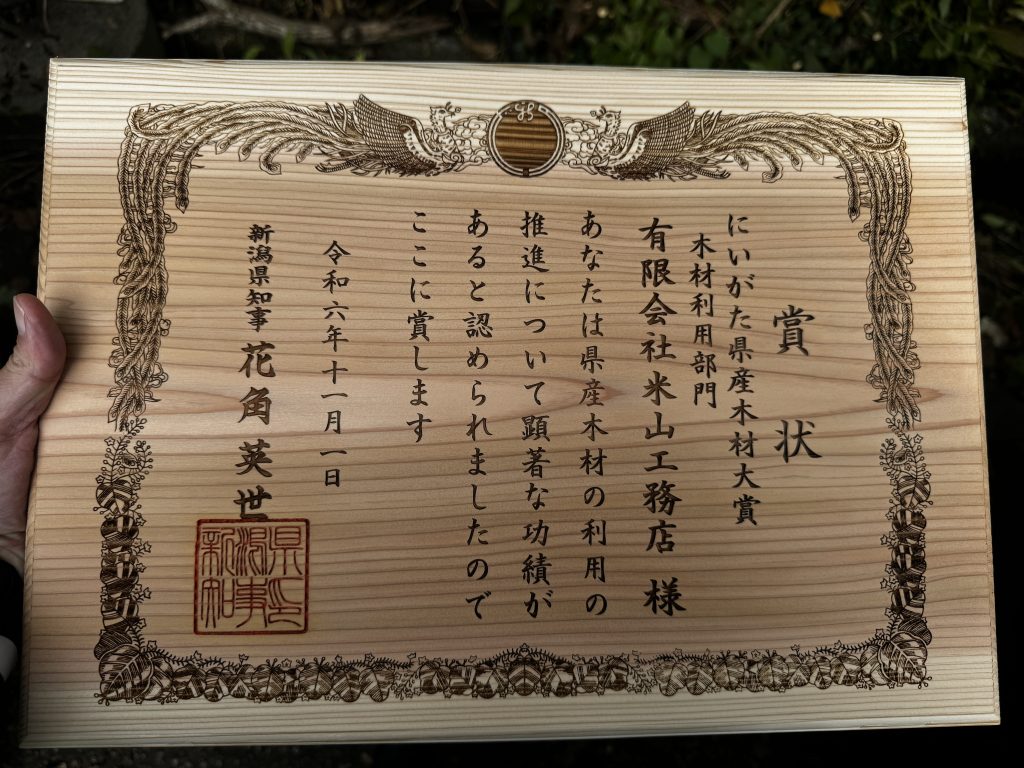 賞状
にいがた県産木材大賞
木材利用部門
有限会社米山工務店 様
あなたは県産木材の利用の
推進について顕著な功績が
あると認められましたので
ここに賞します
令和六年十一月一日
新潟県知事 花角英世
新潟県知事印